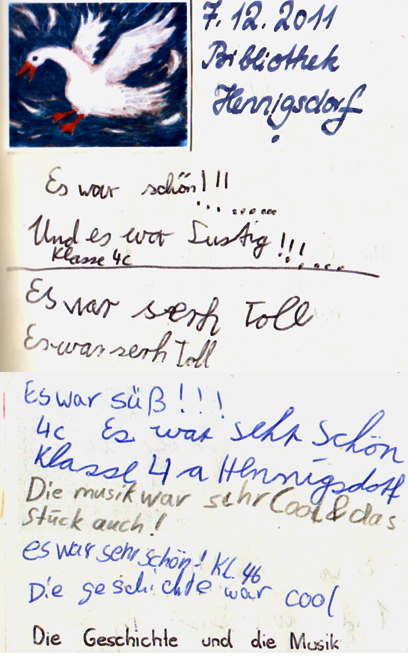 7.12.2011
Bibliothek
Hennigsdorf
Es war schön!!!
Und es war Lustig!!!
Klasse 4c
Es war serh Toll
Es war serh Toll
Es war süß!!!
4c Es war sehr Schön
Klasse 4a Hennigsdorf
Die musik war sehr Cool & das
Stück auch!
es war sehr schön! KL. 4b
Die geschichte war cool
Die Geschichte und die Musik